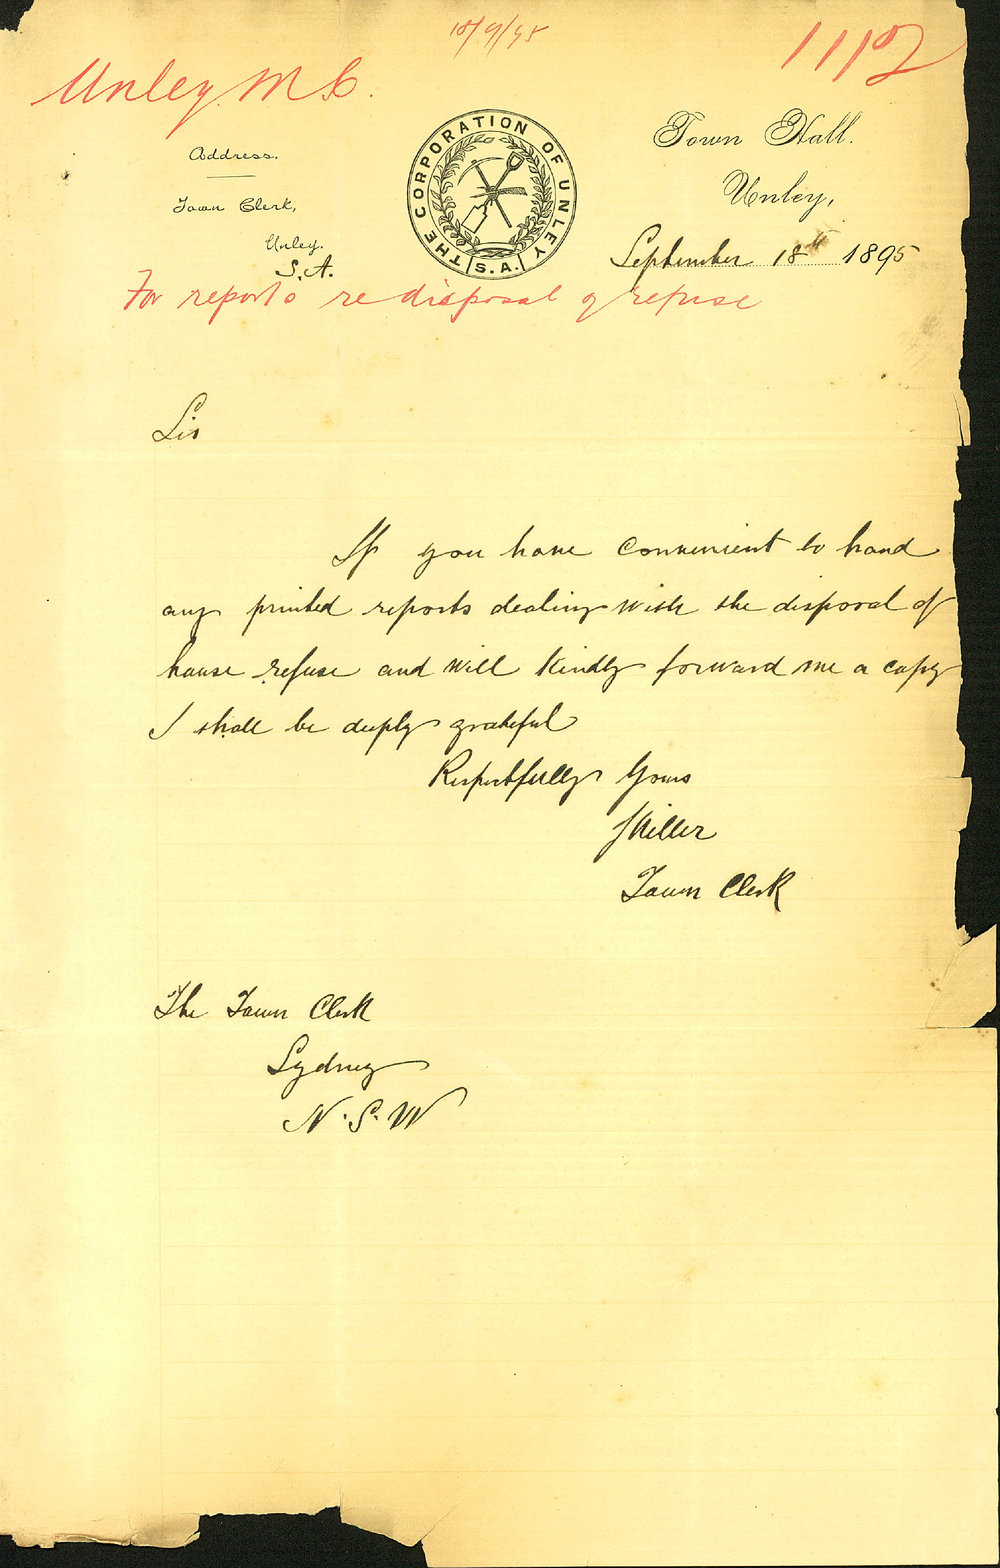 18/9/95
Unley M.C.
Address.
Town Clerk,
Unley.
S.A.
THE CORPORATION OF UNLEY
S.A.
Town Hall.
Unley,
September 18th 1895
For reports re disposal of refuse
Sir
If you have convenient to hand
any printed reports dealing with the disposal of
house refuse and will kindly forward me a copy
I shall be deeply grateful
Respectfully Yours
Miller
Town Clerk
The Town Clerk
Sydney
N.S.W